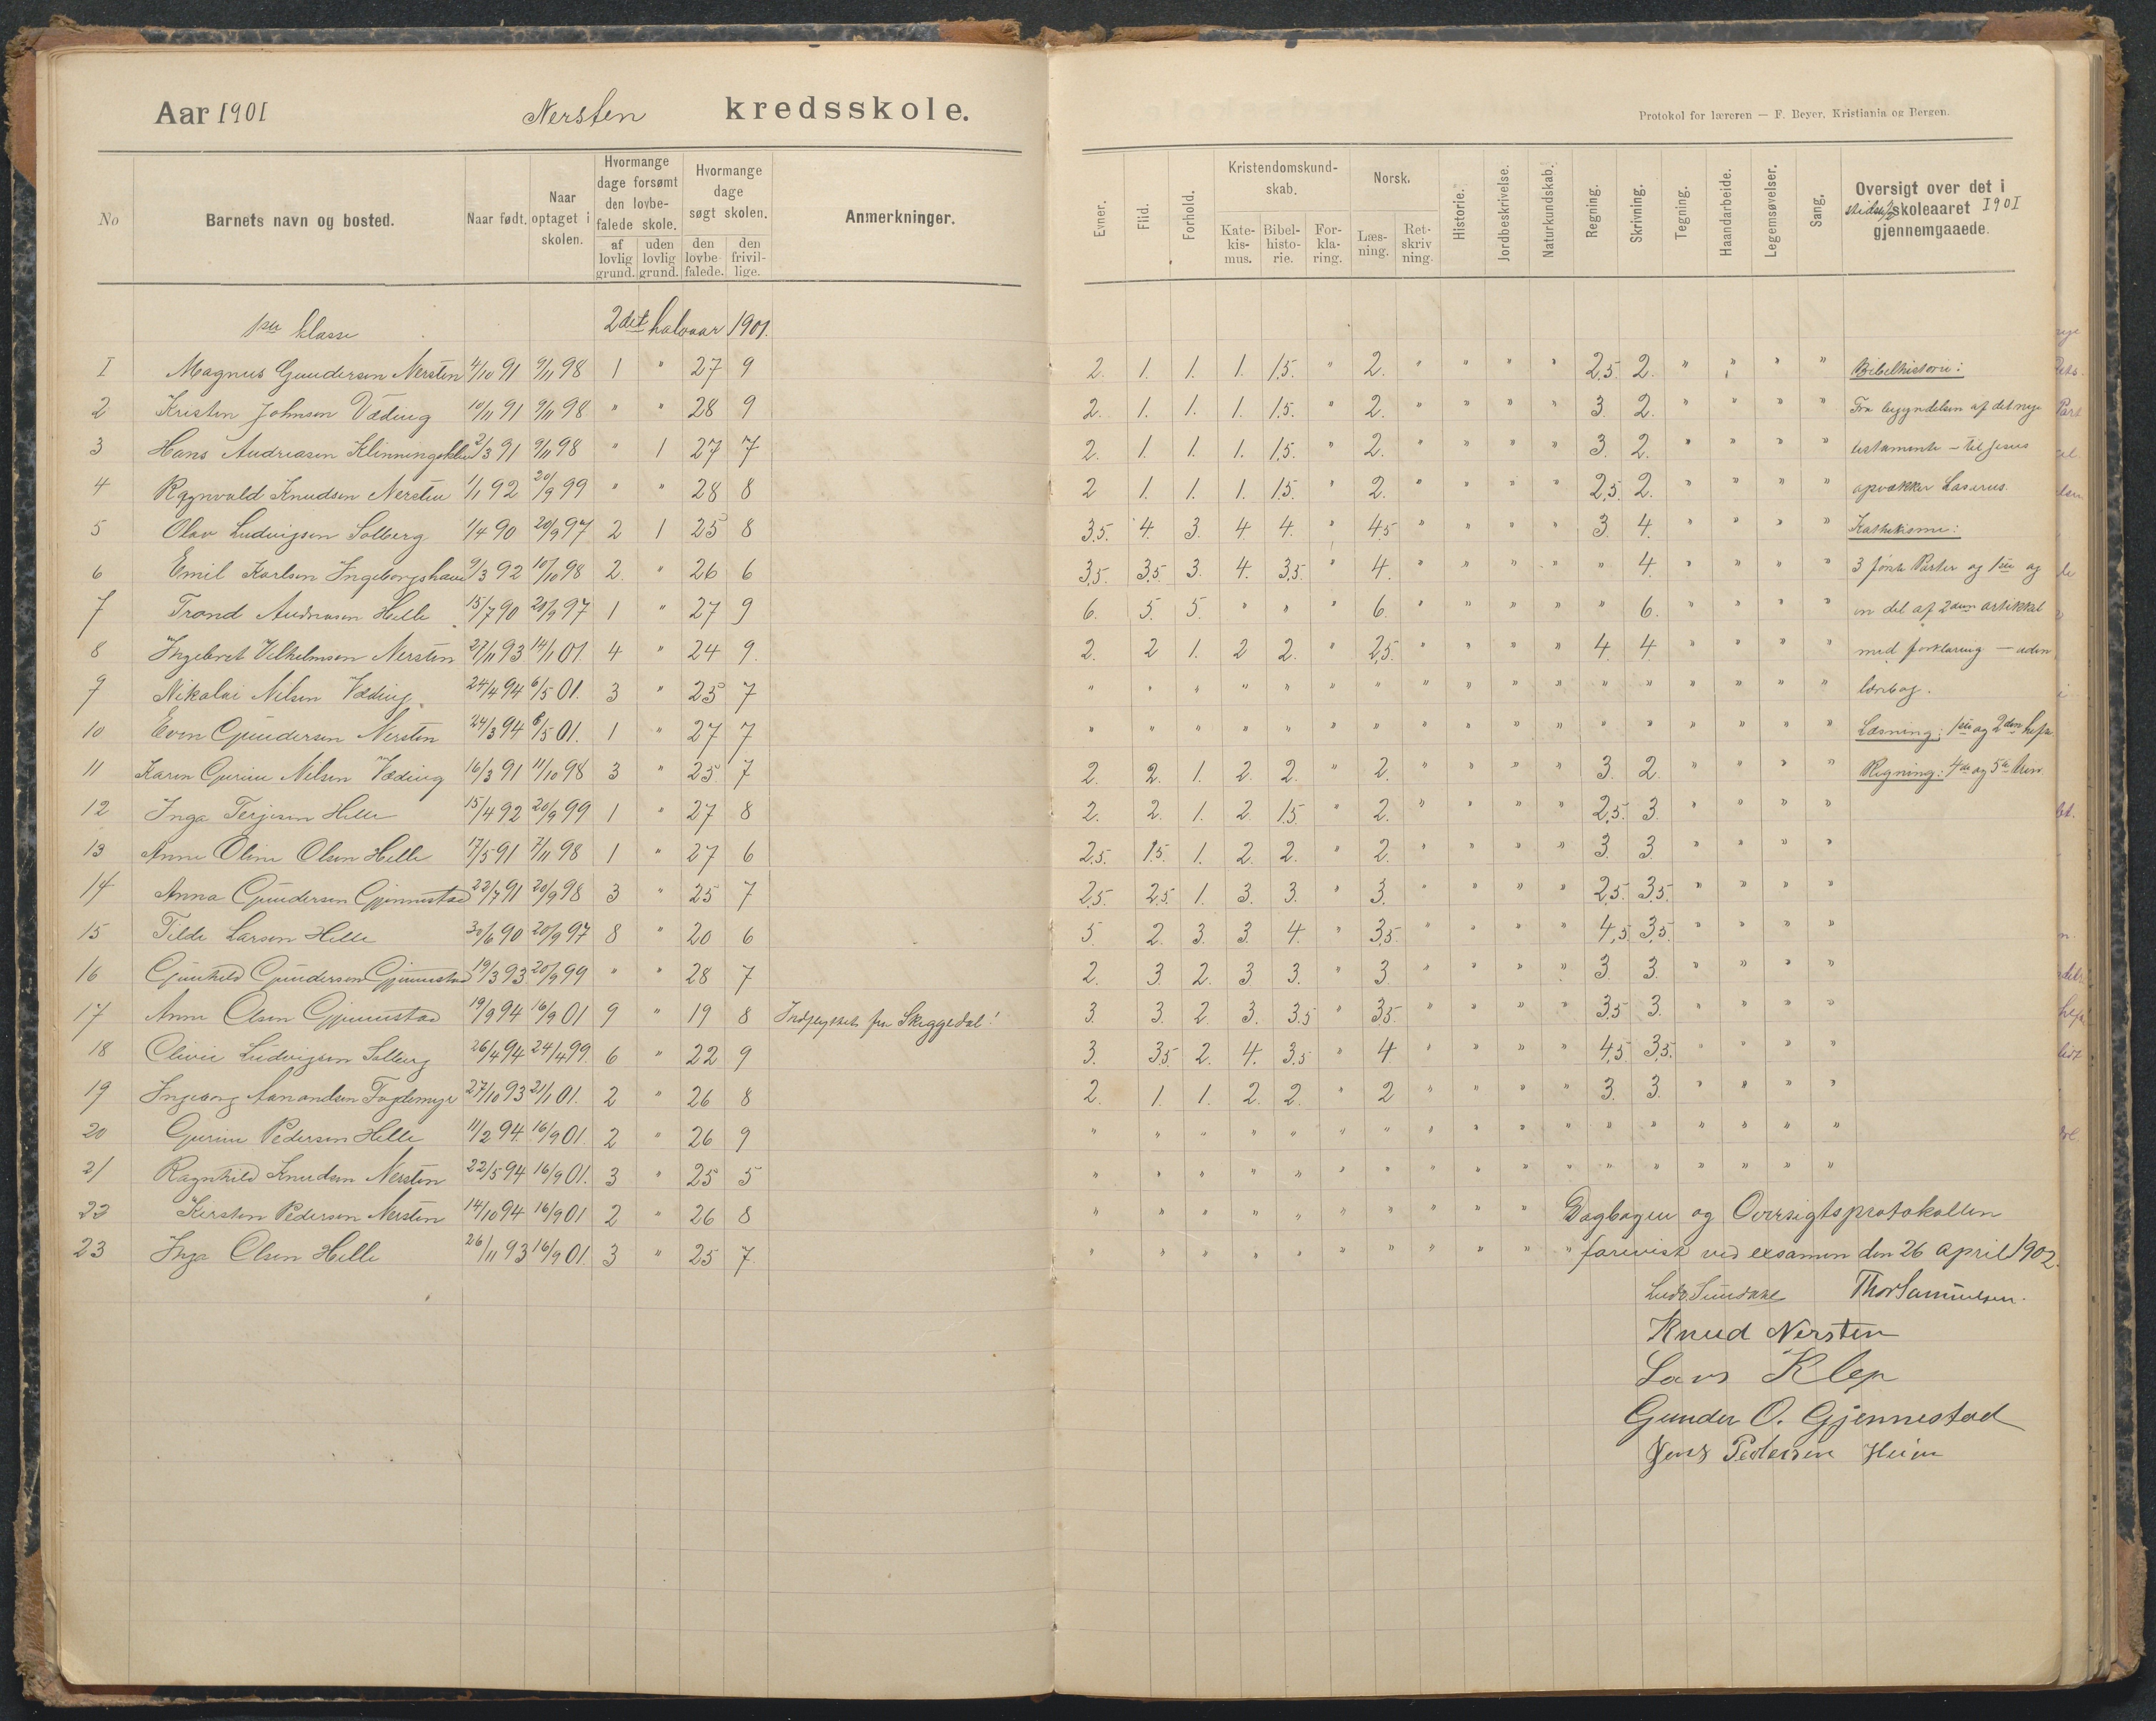 Aar 1901 Nersten kredsskole.
No Barnets navn og bosted. Naar født. Naar optaget i skolen. Hvormange dage forsømt den lovbefalede skole. af lovlig grund. uden lovlig grund. Hvormange dage søgt skolen. den lovbefalede. den frivillige. Anmerkninger.
1ste klasse 2det halvaar 1901.
I Magnus Gundersen Nersten 4/10 91 9/11 98 1 " 27 9
2 Kristen Johnsen Væding 10/11 91 9/11 98 " " 28 9
3 Hans Andreasen 2/3 91 9/11 98 " 1 27 7
4 Ragnvald Knudsen Nersten 1/1 92 20/9 99 " " 28 8
5 Olav Ludvigsen Solberg 1/4 90 20/9 97 2 1 25 8
6 Emil Karlsen 9/3 92 10/10 98 2 " 26 6
7 Trond Andreasen Helle 15/7 90 21/9 97 1 " 27 9
8 Ingebret Vilhelmsen Nersten 27/11 93 14/1 01. 4 " 24 9.
9 Nikolai Nilsen Væding 24/4 94 6/5 01. 3 " 25 7
10 Even Gundersen Nersten 24/3 94 6/5 01. 1 " 27 7
11 Karen Gurine Nilsen Væding 16/3 91 11/10 98 3 " 25 7
12 Inga Terjesen Helle 15/4 92 20/9 99 1 " 27 8
13 Anne Oline Olsen Helle 17/5 91 7/11 98 1 " 27 6
14 Anna Gundersen Gjennestad 22/7 91 20/9 98 3 " 25 7
15 Tilde Larsen Helle 30/6 90 20/9 97 8 " 20 6
16 Gunhild Gundersen Gjennestad 19/3 93 20/9 99 " " 28 7
17 Anne Olsen Gjennestad 19/9 94 16/9 01 9 " 19 8 Indflyttet fra Skiggedal!
18 Olivie Ludvigsen Solberg 26/4 94 24/4 99. 6 " 22 9
19 Ingeborg Aanandsen Fogdemyr 27/10 93 21/1 01. 2 " 26 8
20 Gurine Pedersen Helle 11/2 94. 16/9 01. 2 " 26 9
21 Ragnhild Knudsen Nersten 22/5 94 16/9 01. 3 " 25 5
23 Kirsten Pedersen Nersten 14/10 94 16/9 01 2 " 26 8
23 Inga Olsen Helle 26/11 93 16/9 01. 3 " 25 7
Protokol for læreren — F. Beyer, Kristiania og Bergen.
Evner. Flid. Forhold. Kristendomskundskab. Katekismus. Bibelhistorie. Forklaring. Norsk. Læsning. Retskrivning. Historie. Jordbeskrivelse. Naturkundskab. Regning. Skrivning. Tegning. Haandarbeide. Legemsøvelser. Sang. Oversigt over det i skoleaaret 1901 gjennemgaaede.
2. 1. 1. 1. 1,5. " 2. " " " " 2,5. 2. " " " " Bibelhistorie:
2. 1. 1. 1. 1,5. " 2. " " " " 3. 2. " " " " Fra begyndelsen af det nye
2. 1. 1. 1. 1,5. " 2. " " " " 3. 2. " " " " testamente – til Jesus
2 1. 1. 1. 1,5. " 2. " " " " 2,5. 2. " " " " opvækker Lasarus.
3,5. 4. 3. 4. 4. " 4,5 " " " " 3. 4. " " " " Kathekisme:
3,5. 3,5. 3. 4. 3,5. " 4. " " " " " 4. " " " " 3 første Parter og 1ste og
6. 5. 5. " " " 6. " " " " " 6. " " " " en del af 2den artikkel
2. 2 1. 2 2. " 2,5. " " " " 4. 4. " " " " med forklaring – uden
" " " " " " " " " " " " " " " " " lærebog.
" " " " " " " " " " " " " " " " " Læsning: 1ste og 2den hefte
2. 2. 1. 2. 2. " 2. " " " " 3. 2. " " " " Regning: 4de og 5te
2. 2. 1. 2. 1,5 " 2. " " " " 2,5. 3. " " " "
2,5. 1,5. 1. 2. 2. " 2. " " " " 3. 3. " " " "
2,5. 2,5. 1. 3. 3. " 3. " " " " 2,5. 3,5. " " " "
5. 2. 3. 3. 4. " 3,5. " " " " 4,5. 3,5. " " " "
2. 3. 2. 3 3. " 3. " " " " 3. 3. " " " "
3. 3. 2. 3. 3,5 " 3,5. " " " " 3,5 3. " " " "
3. 3,5 2. 4. 3,5 " 4 " " " " 4,5 3,5. " " " "
2. 1. 1. 2. 2. " 2 " " " " 3. 3. " " " "
" " " " " " " " " " " " " " " " "
" " " " " " " " " " " " " " " " "
" " " " " " " " " " Dagbogen og Oversigtsprotokollen
" " " " " " " " " " " forevist ved examen den 26 april 1902.
Thor Samuelsen.
Knud Nersten
Lars Klep
Gunder O. Gjennestad
Jens Pedersen Heim